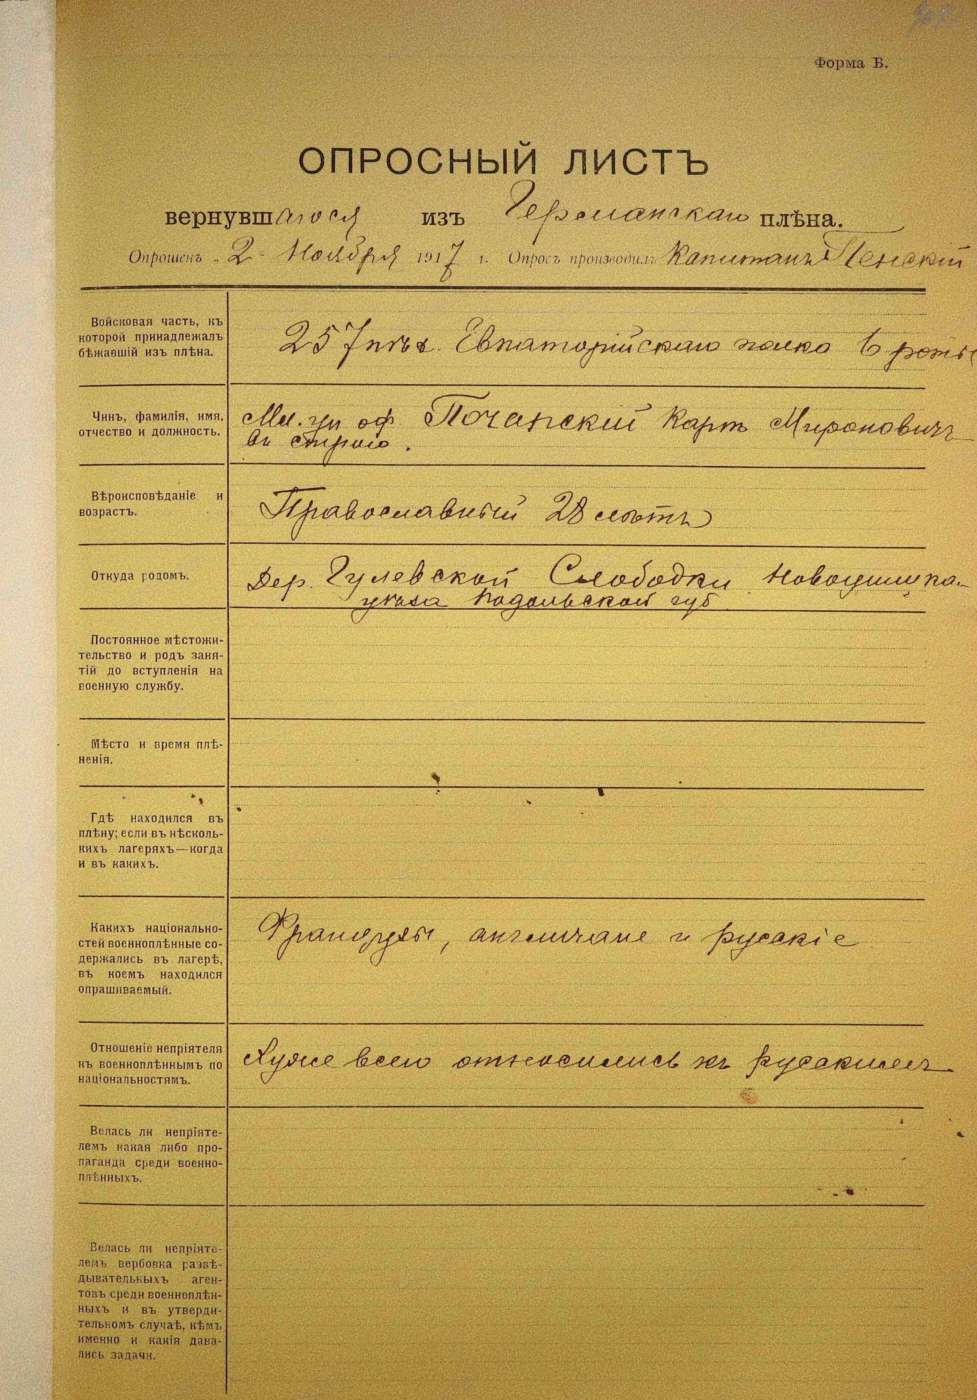 Форма Б.
ОПРОСНЫЙ ЛИСТЪ
вернувшагося изъ Германскаго плѣна.
Опрошенъ 2 Ноября 1917 г. Опросъ производилъ Капитанъ Пенскій
Войсковая часть, къ
которой принадлежалъ
бѣжавшій изъ плѣна.
257 пѣх. Евпаторійскаго полка 6 роты
Чинъ, фамилія, имя,
отчество и должность.
Мл. ун оф Почанскій Карпъ Мироновичъ
въ строю.
Вѣроисповѣданіе и
возрастъ.
Православный 28 лѣтъ
Откуда родомъ.
Дер. Гулевской Слободки Новоушицка-
уѣзда Подольской губ
Постоянное мѣстожи-
тельство и родъ заня-
тій до вступленія на
военную службу.
Мѣсто и время плѣ-
ненія.
Гдѣ находился въ
плѣну; если въ нѣсколь-
кихъ лагеряхъ—когда
и въ какихъ.
Какихъ національно-
стей военноплѣнные со-
держались въ лагерѣ,
въ коемъ находился
опрашиваемый.
Французы, англичане и русскіе
Отношеніе непріятеля
къ военноплѣннымъ по
національностямъ.
Хуже всего относились къ русскимъ
Велась ли непріяте-
лемъ какая либо про-
паганда среди военно-
плѣнныхъ.
Велась ли непріяте-
лемъ вербовка развѣ-
дывательныхъ аген-
товъ среди военноплѣн-
ныхъ и въ утверди-
тельномъ случаѣ, кѣмъ
именно и какія дава-
лись задачи.